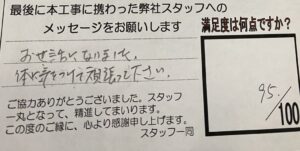 最後に本工事に携わった弊社スタッフへの
メッセージをお願いします
おせ話になりました。
体に気をつけて頑張って下さい。
ご協力ありがとうございました。スタッフ
一丸となって、精進してまいります。
この度のご縁に、心より感謝申し上げます。
スタッフ一同
満足度は何点ですか?
95
/100